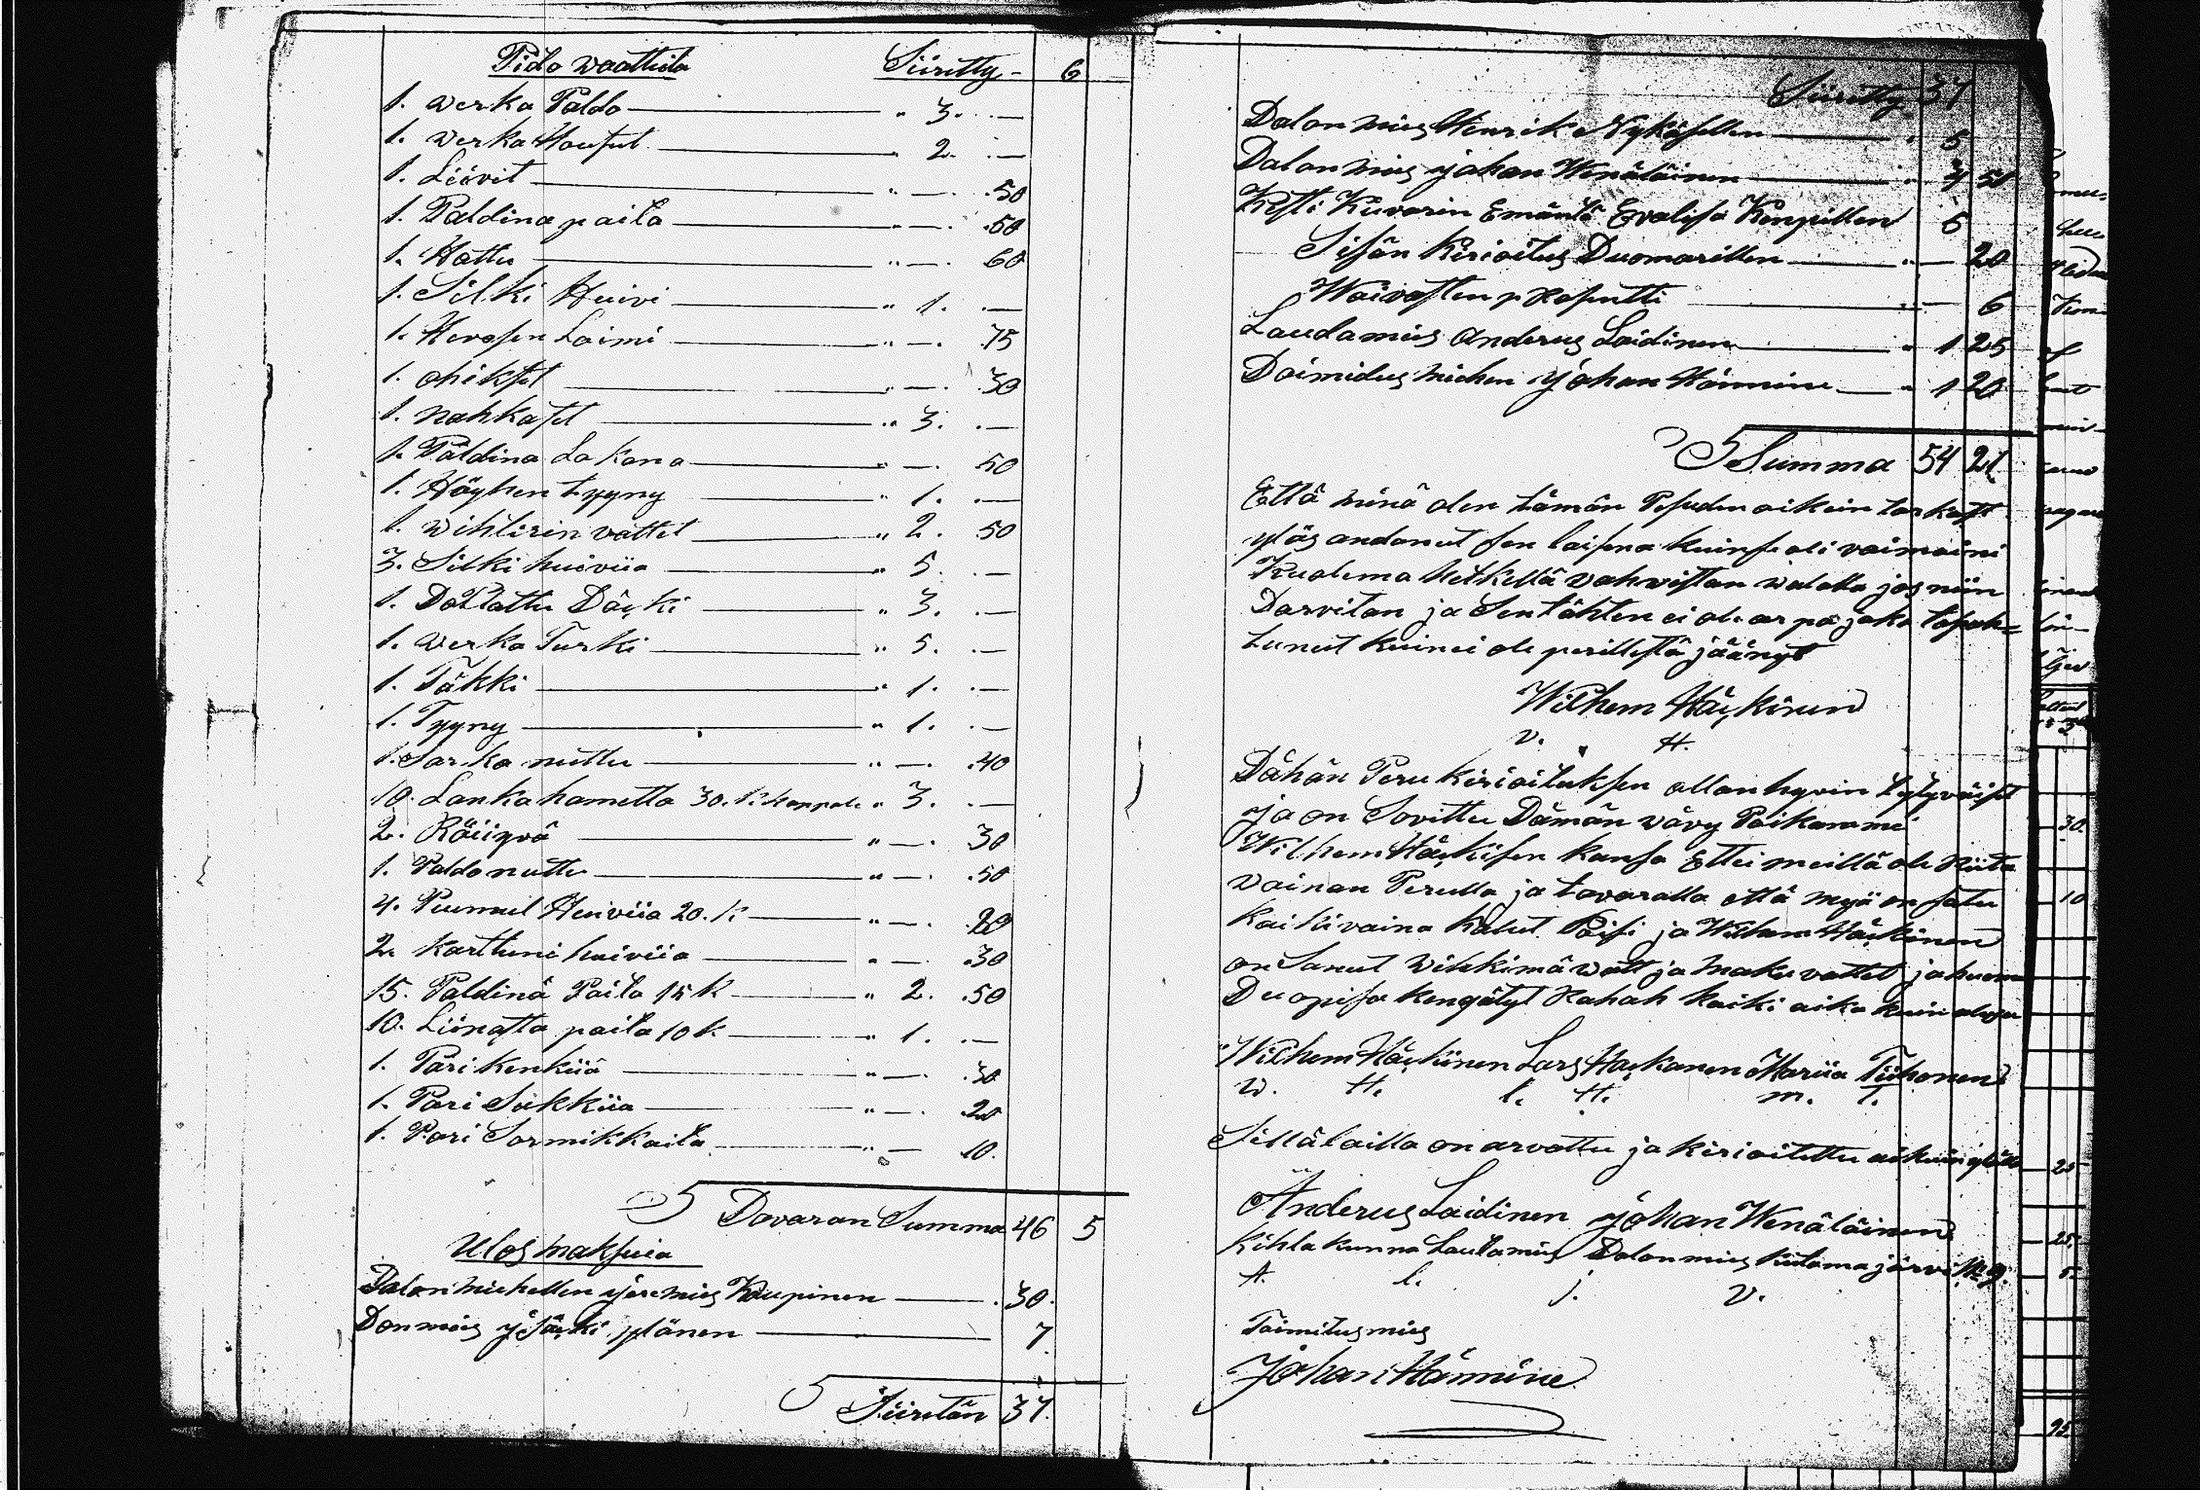 Pito waatteita Siiretty - 6
1. verka Paldo " 3. . —
1. verka Housut " 2. . —
1. Liivit " — . 50
1. Paldina paita " — . 50
1. Hattu " — . 60
1. Silki Huivi " 1. . —
1. Hevosen Loimi " — . 75
1. " — . 30
1. nahkaset " 3. . —
1. Paldina Lakana " — . 50
1. Höyhen tyyny " 1. . —
1. vättet " 2. 50
3. Silki huiviia " 5. . —
1. Däcki " 3. . —
1. verka Turki " 5. . —
1. Täkki " 1. . —
1. Tyyny " 1. . —
1. Sarka nuttu " — . 40
10. Lanka hametta 30. K kappale " 3. . —
2. Röiiyvä " — . 30
1. Paldo nuttu " — . 50
4. Puumul Huiviia 20. K " — . 80
2. Karttuni huiviia " — . 30
15. Paldinä Paita 15 K " 2. 50
10. Liinasta paita 10 K " 1. . —
1. Pari Kenkiiä " — . 30
1. Pari Sukkiia " — . 20
1. Pari Sormikkaita " — 10.
Davaran Summa 46 5
Ulos maksuia
Dalon miehellen yeremies Kaupinen . 30.
7.
Siiretän 37.
Siiretty 37
Dalon mies Henrik Nykäsellen " 5
Dalon mies johan Wenäläinen "
Kesti Kiivarin Emäntä Evalisa 5
Sisän Kirioitus Duomarillen " — 20
Waivasten prosentti " — 6
Laudamies Anderus Laidinen " 1 25
Doimidus miehen johan Hänninen " 1 20
Summa 54 21
Että minä olen tämän Pesuden oikein tarkast
ylös andanut sen laisena kuin se oli vaimoini
Kuolema hetkellä vahvistan valalla jos niin
Darvitan ja Sentähten ei ole arpa jako tapah=
tunut kuin ei ole perillestä jäänyt
Wilhem Häckinen
v. H.
Dähän Peru kirioituksen ollan hyvin tytyväiset
ja on Sovittu Dämän vävy Poikamme
Wilhem Häckisen kansa Ettei meillä ole
vainan Perulla ja tavaralla että myö on satu
kaiki vaina kalut Poisi ja Wilhem Häckinen
on Sanut vihkimä ja maku vattet ja
kengätyt Rahah kaiki aika kuin
Wilhem Häckinen Lars Hackanen Mariia Tiihonen
W. H. l. H. m. T.
Sillä lailla on arvattu ja kirioitettu
Anderus Laidinen johan Wenäläinen
Kihlakunna Lautamies Dalon mies
A. l. j. v.
Toimitus mies
Johan Hännine